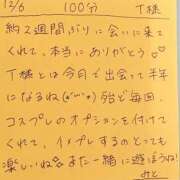 12/6 100分 T様
約2週間ぶりに会いに来て
くれて、本当にありがとう♡
T様とは今月で出会って半年
になるね(*'ω'*) 殆ど毎回、
コスプレのオプションを付けて
くれて、イメプレするのとっても
楽しいね♪また一緒に遊ぼうね!
みと